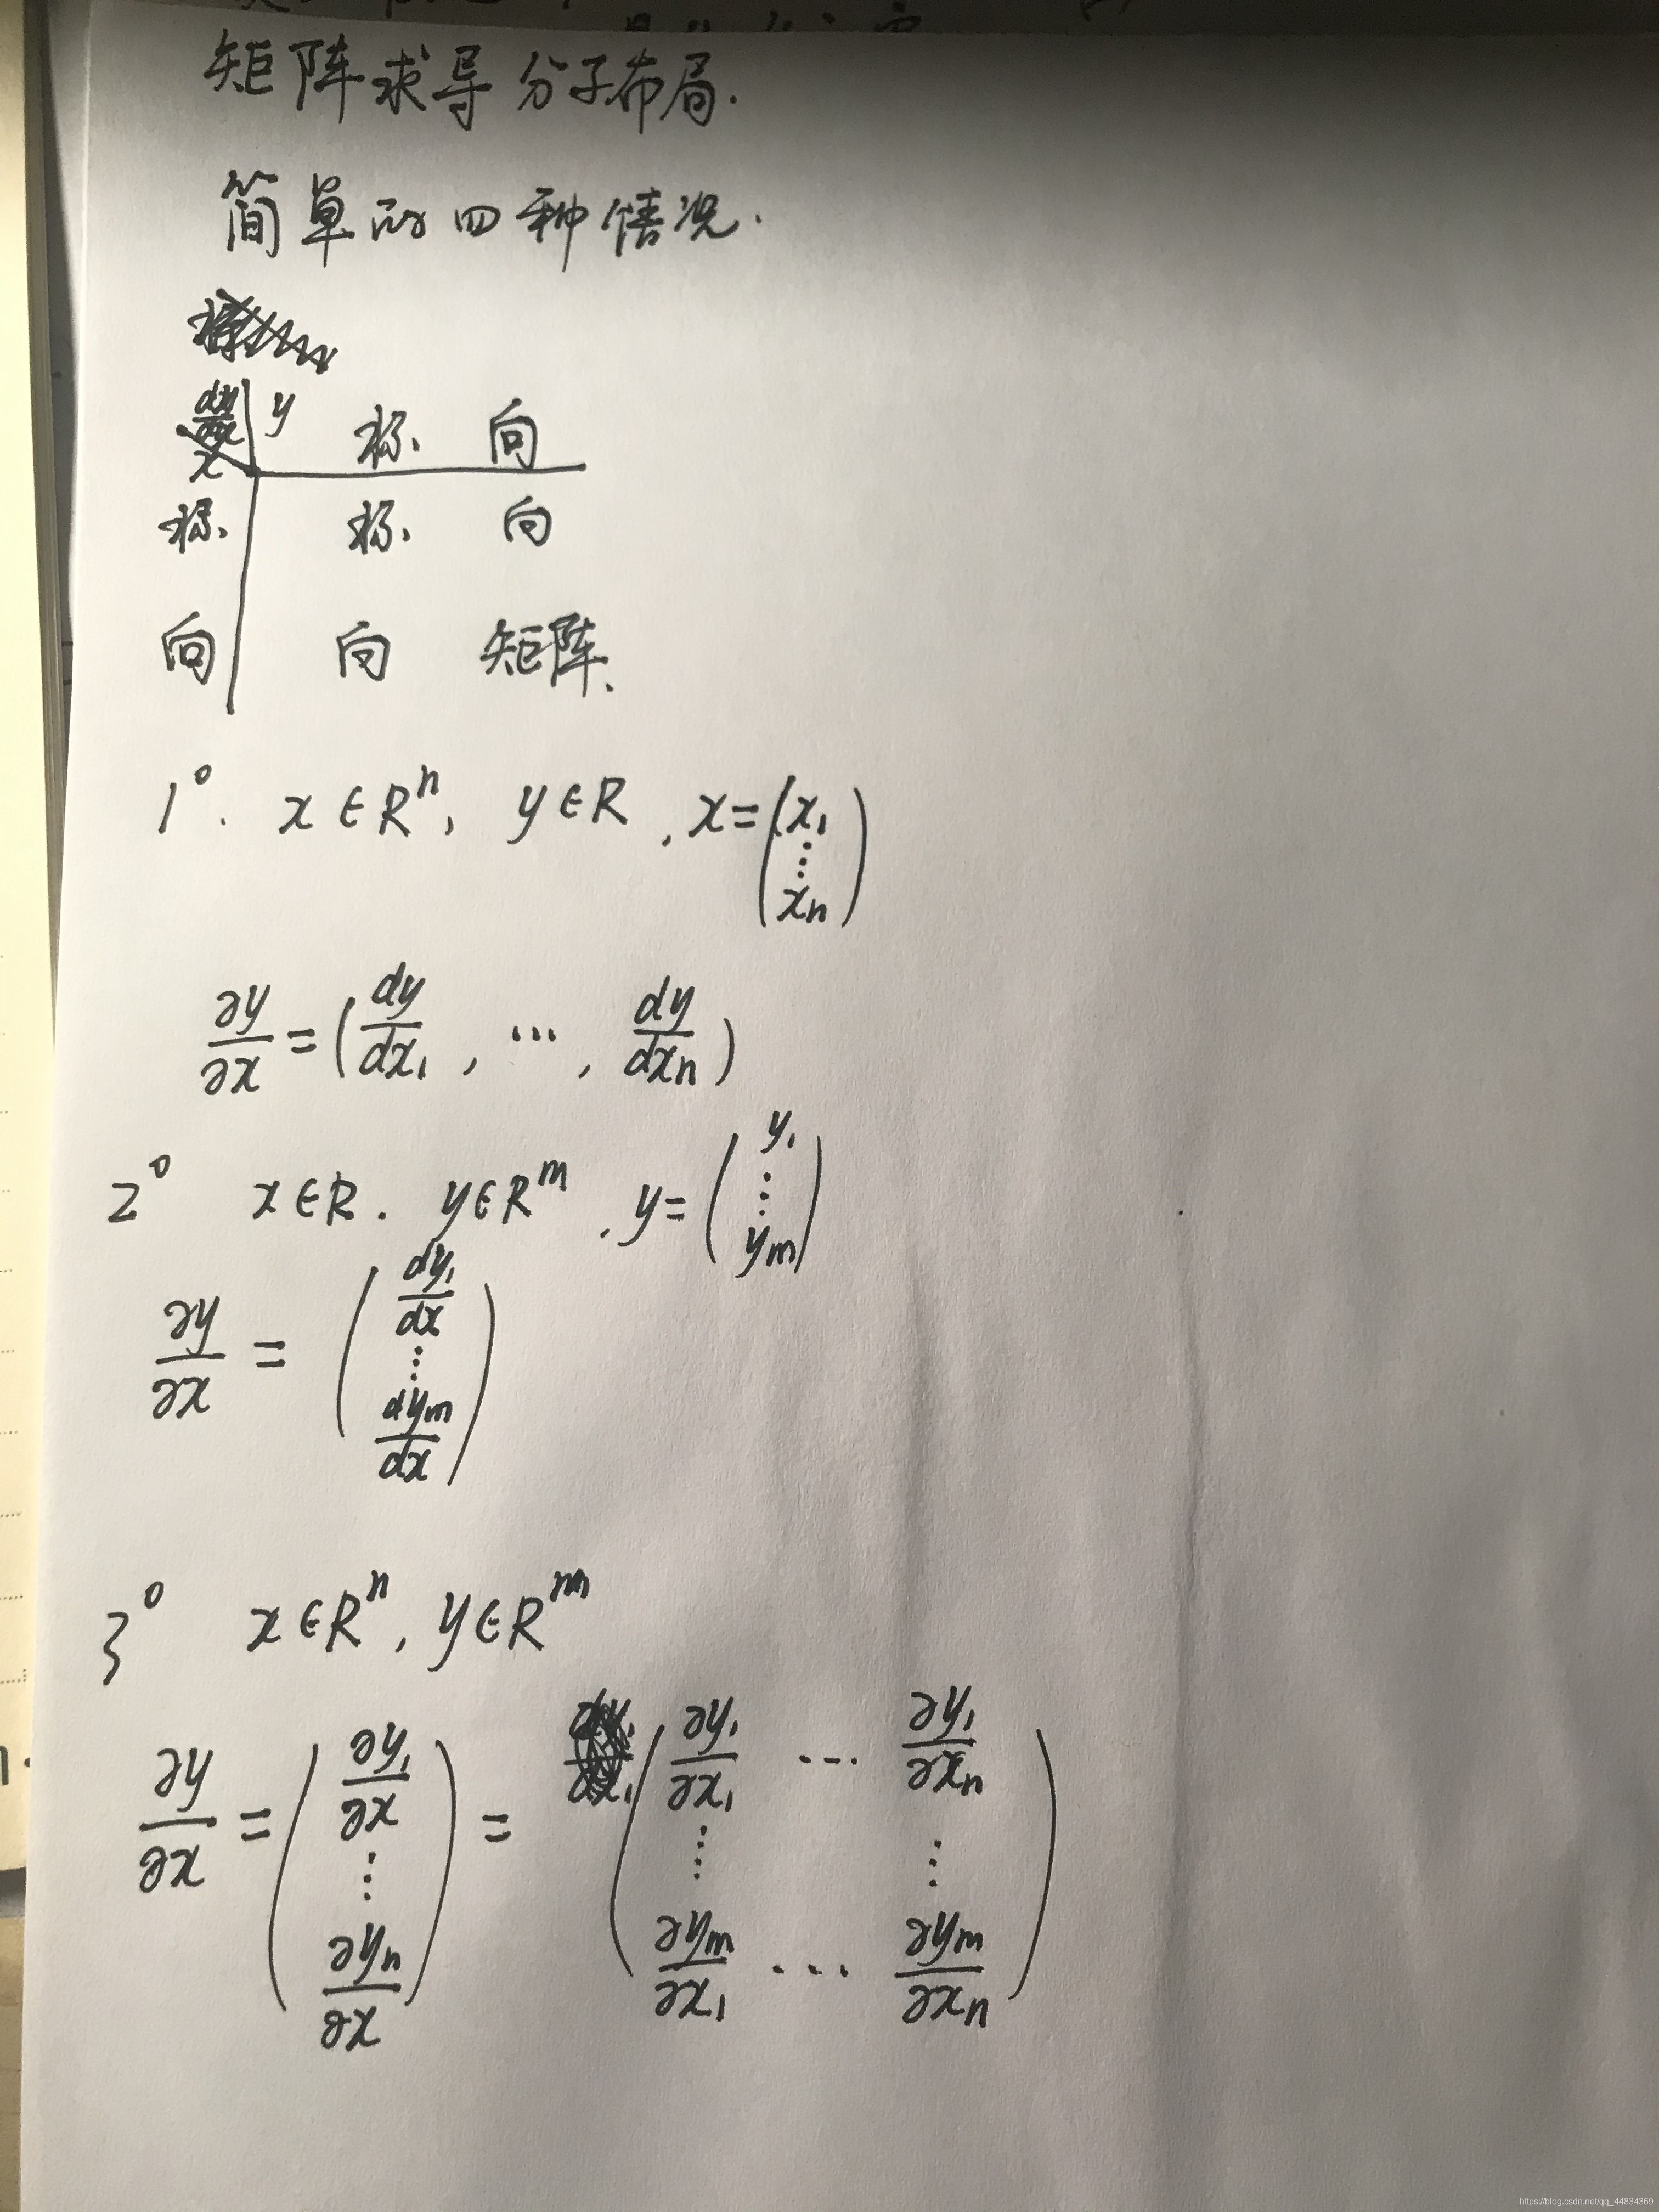 矩阵求导分子布局.
简单的四种情况.
y 标. 向
x
标. 标. 向
向 向 矩阵.
1°. x∈Rⁿ, y∈R, x=(x₁ ⋮ xₙ)
∂y/∂x = (dy/dx₁, ⋯, dy/dxₙ)
2° x∈R. y∈Rᵐ. y=(y₁ ⋮ yₘ)
∂y/∂x = (dy₁/dx ⋮ dyₘ/dx)
3° x∈Rⁿ, y∈Rᵐ
∂y/∂x = (∂y₁/∂x ⋮ ∂yₙ/∂x) = (∂y₁/∂x₁ ⋯ ∂y₁/∂xₙ ⋮ ⋮ ∂yₘ/∂x₁ ⋯ ∂yₘ/∂xₙ)
https://blog.csdn.net/qq_44834369